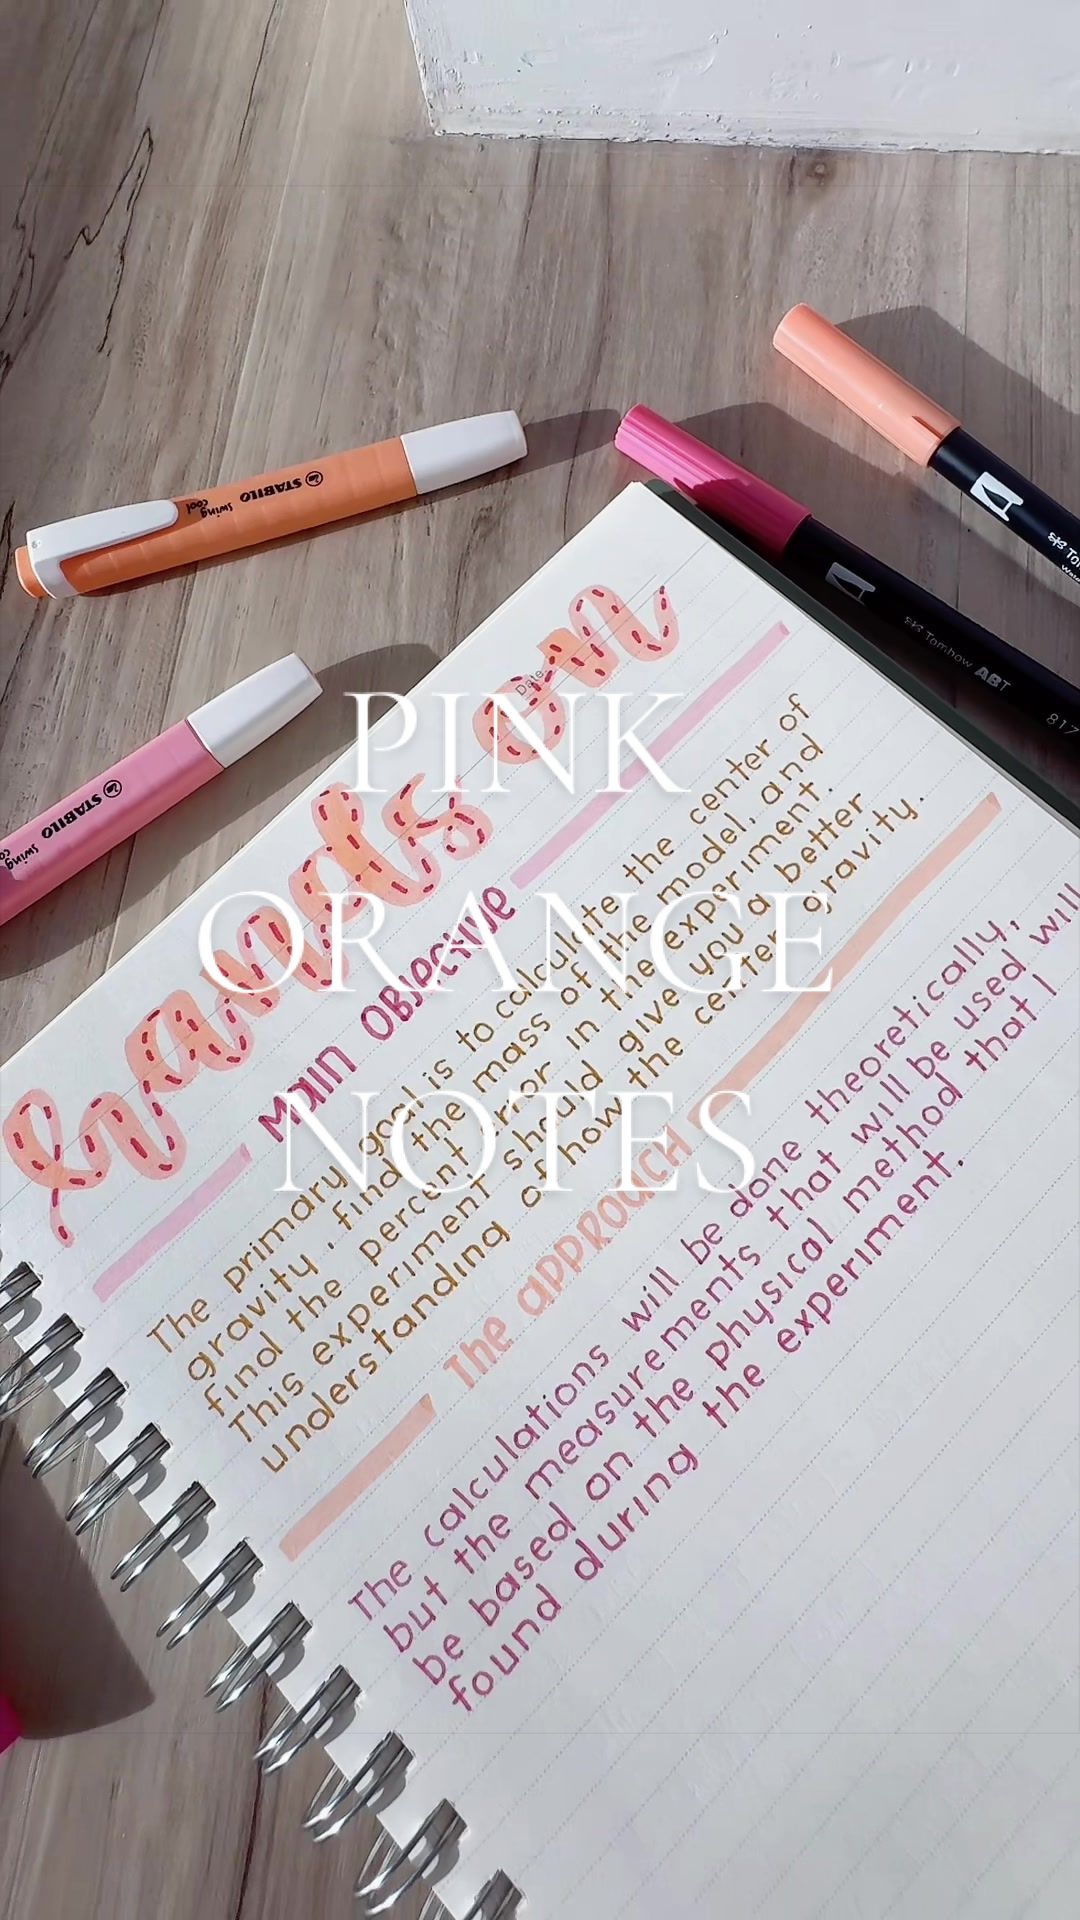 PINK
ORANGE
NOTES
STABILO
swing
cool
STABILO
swing
Tombow
Tombow ABT
817
Date
hands on
Main Objective
The primary goal is to calculate the center of
gravity, find the mass of the model, and
find the percent error in the experiment.
This experiment should give you a better
understanding of how the center gravity.
The approach
The calculations will be done theoretically,
but the measurements that will be used will
be based on the physical method that I
found during the experiment.